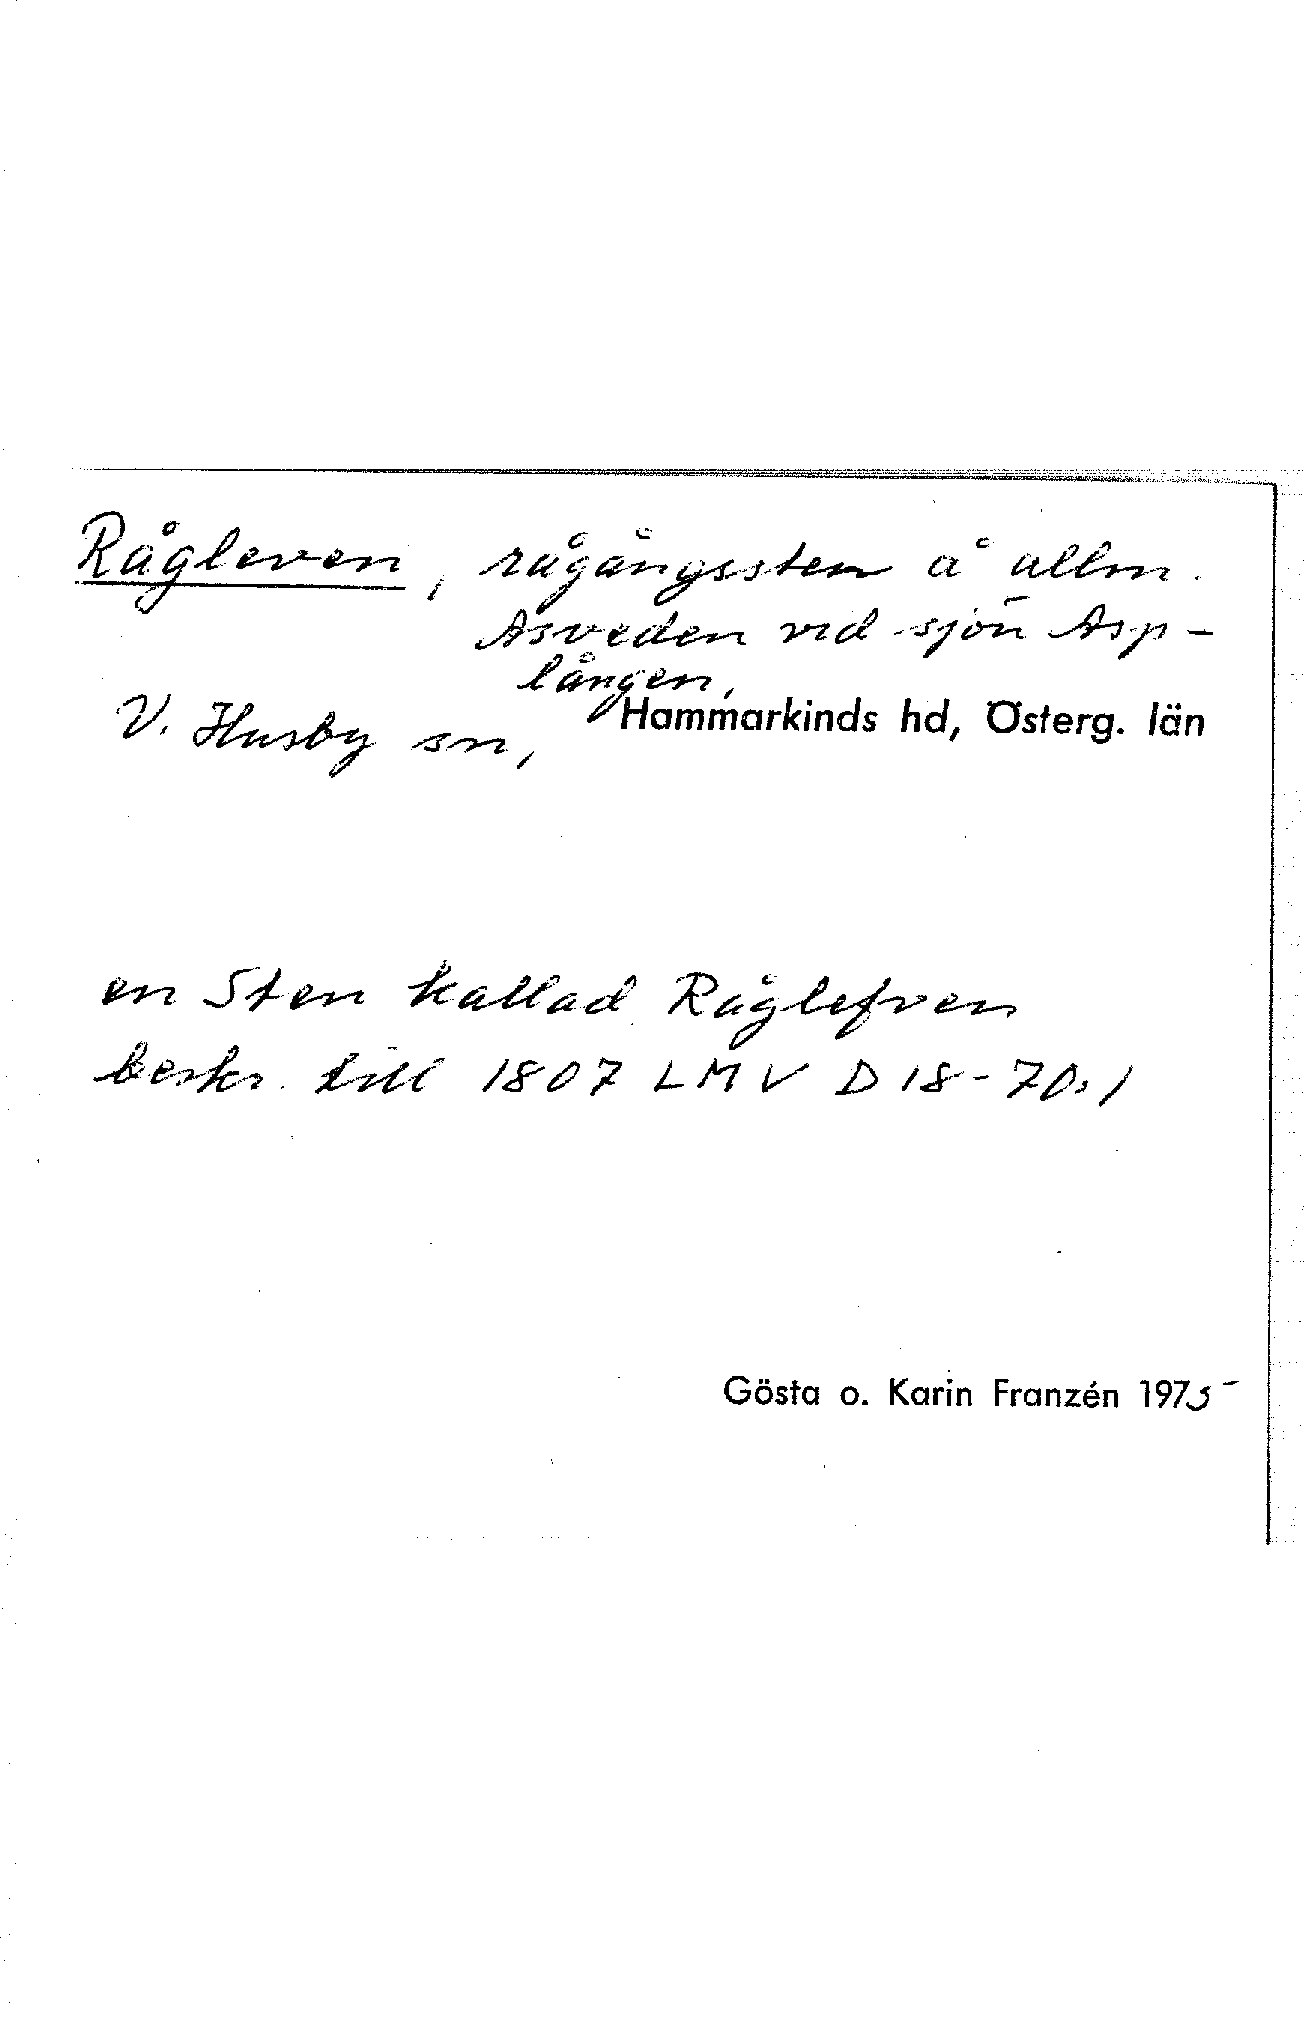 Rågleven, rågångssten å allm.
Asveden vid sjön Asp-
lången,
V. Husby sn, Hammarkinds hd, Österg. län
en Sten kallad Råglefven
beskr. till 1807 LMV D18-70:1
Gösta o. Karin Franzén 1975